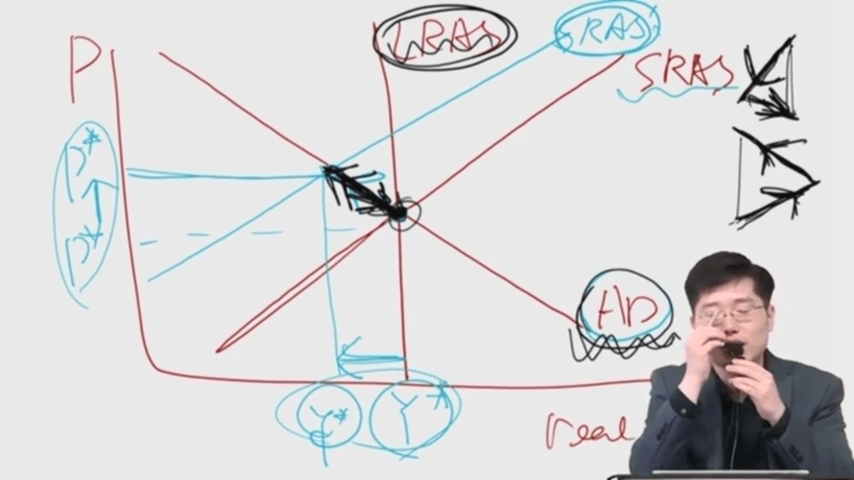 P
LRAS
SRAS
SRAS
P*
P*
AD
Y*
Y*
real